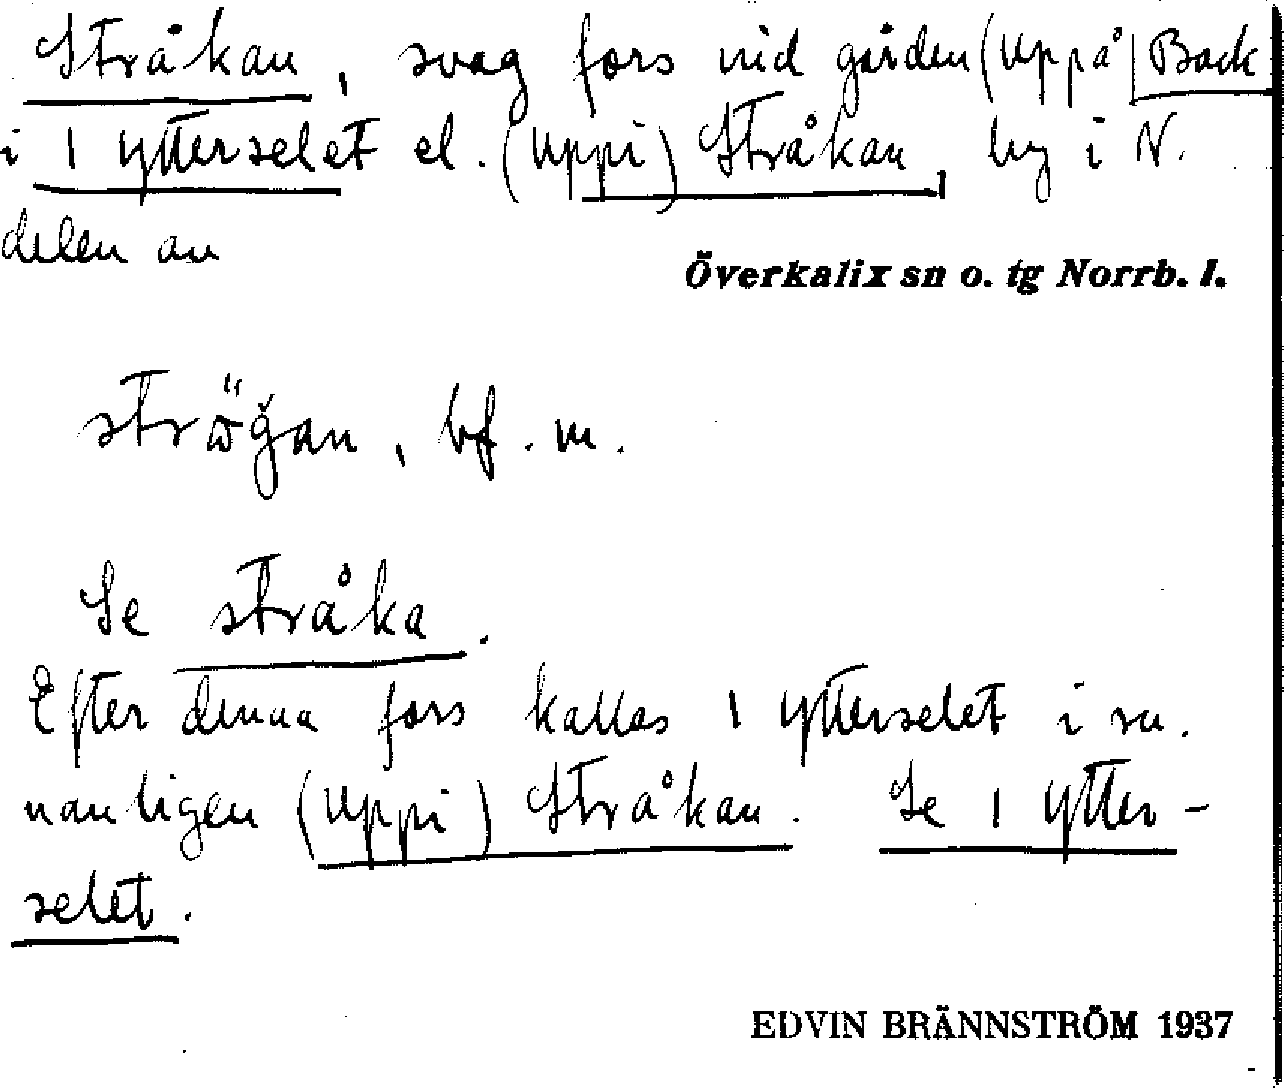 Stråkan, svag fors vid gården (Uppå) Back
i 1 Ytterselet el. (Uppi) Stråkan, by i N.
delen av
Överkalix sn o. tg Norrb. l.
bf. m.
Se stråka.
Efter denna fors kallas 1 Ytterselet i sn.
vanligen (Uppi) Stråkan. Se 1 Ytter-
selet.
EDVIN BRÄNNSTRÖM 1937